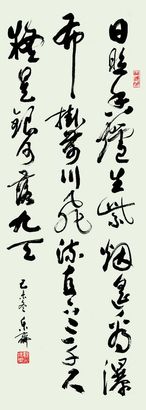 日照香爐生紫烟遙看瀑
布掛前川飛流直下三千尺
疑是銀河落九天
乙未冬